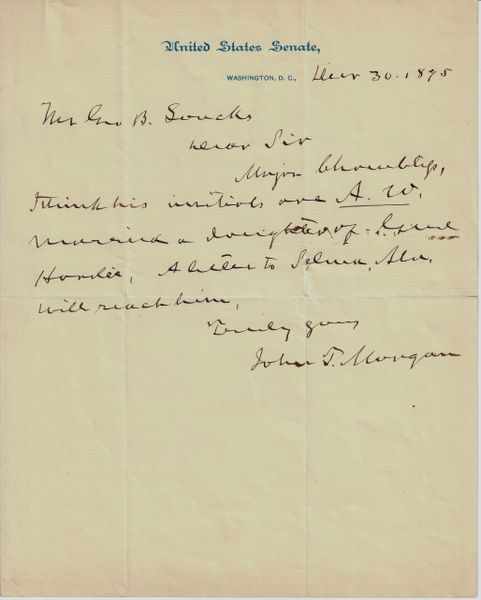 United States Senate,
WASHINGTON, D. C., Decr 30. 1895
Mr Geo B. Loucks
Dear Sir
Major Chambliss,
I think his initials are A. W.
married a daughter of Genl
Hardee, A letter to Selma, Ala.
will reach him,
Truly yours
John T. Morgan